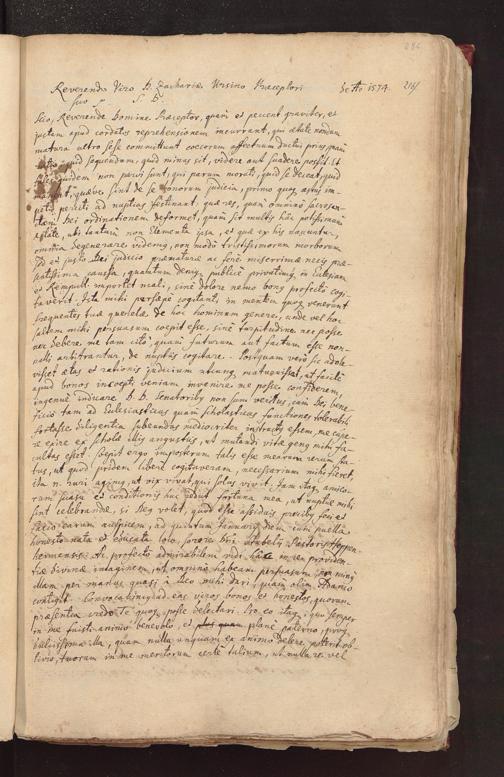 286
Reverendo Viro D. Zachariæ Ursino Præceptori de Ao 1574. 216/
suo S. P. D.
Scio, Reverende Domine Præceptor, quam et peccent graviter, et
justam apud cordatos reprehensionem incurrant, qui ætate nondum
matura ultro sese committunt cœcorum affectuum ductui prius quam
quid sequendum, quid minus sit, videre aut suadere possit. Et
quidem non parvi sunt, qui parum morati, quid se deceat, quid
quæve sint de se bonorum judicia, primo quoque astri im-
petu perciti ad nuptias festinant. quæ res, quam omnino sacrosan-
ctam Dei ordinationem deformet, quam sit multis hac potissimum
ætate, ubi tantum non Elementa ipsa, et quæ ex his nascuntur
omnia degenerare videmus, non modo tristissimorum morborum
sed et justo Dei judicio præmaturæ ac sæpe miserrimæ necis præ-
sentissima caussa, quantum denique publice privatimque in Ecclesiam
et Rempubl. importet mali, sine dolore nemo bonus profecto cogi-
taverit. Ista mihi persæpe cogitanti, in mentem quoque venerunt
frequentes tuæ querelæ de hoc hominum genere, unde vel hoc
saltem mihi persuasum cœpit esse, sine turpitudine nec posse
nec debere me tam cito, quam futurum aut factum esse non-
nulli arbitrantur, de nuptiis cogitare. Postquam vero sic adole-
visset ætas et rationis judicium utcunque maturuisset, ut facile
apud bonos incepti veniam invenire me posse confiderem,
ingenue indicare D. D. Senatoribus non sum veritus, cum Dei bene-
ficio tam ad Ecclesiasticas quam scholasticas functiones tolerabili
fortasse diligentia subeundas mediocriter instructus essem, me cupe-
re exire ex schola illis angustiis, ut mutandi vitæ genus mihi fa-
cultas esset. Cœpit ergo impostorum talis esse mearum rerum sta-
tus, ut quod pridem libere cogitaveram, necessarium mihi fieret,
ita n. huri agimus, ut vix vivat, qui solus vivit. Jam itaque amico-
rum suasu et conditionis huc adput fortuna mea, ut nuptiæ mihi
sint celebrandæ, si Deus volet, quod esse assiduis precibus
facio earum auspicem, ad quintum Januarii diem cum puella
honesta nata et educata loco, sorore Dni Pastoris Oppen-
heimensis. Ac profecto admirabilem vidi hac in re providen-
tiæ divinæ imaginem, ut omnino habeam persuasum, non minus
illam per manus quasi a Deo mihi dari, quam olim Adamo
contigit. Convocabimus ad eas viros bonos et honestos, quorum
præsentia video Te quoque posse delectari. Pro eo itaque, quo semper
in me fuisti animo benevolo, et plane paterno, provo-
, quam nulla unquam ex animo delere poterit ob-
livio, tuorum in me meritorum certe talium, ut nulla re vel